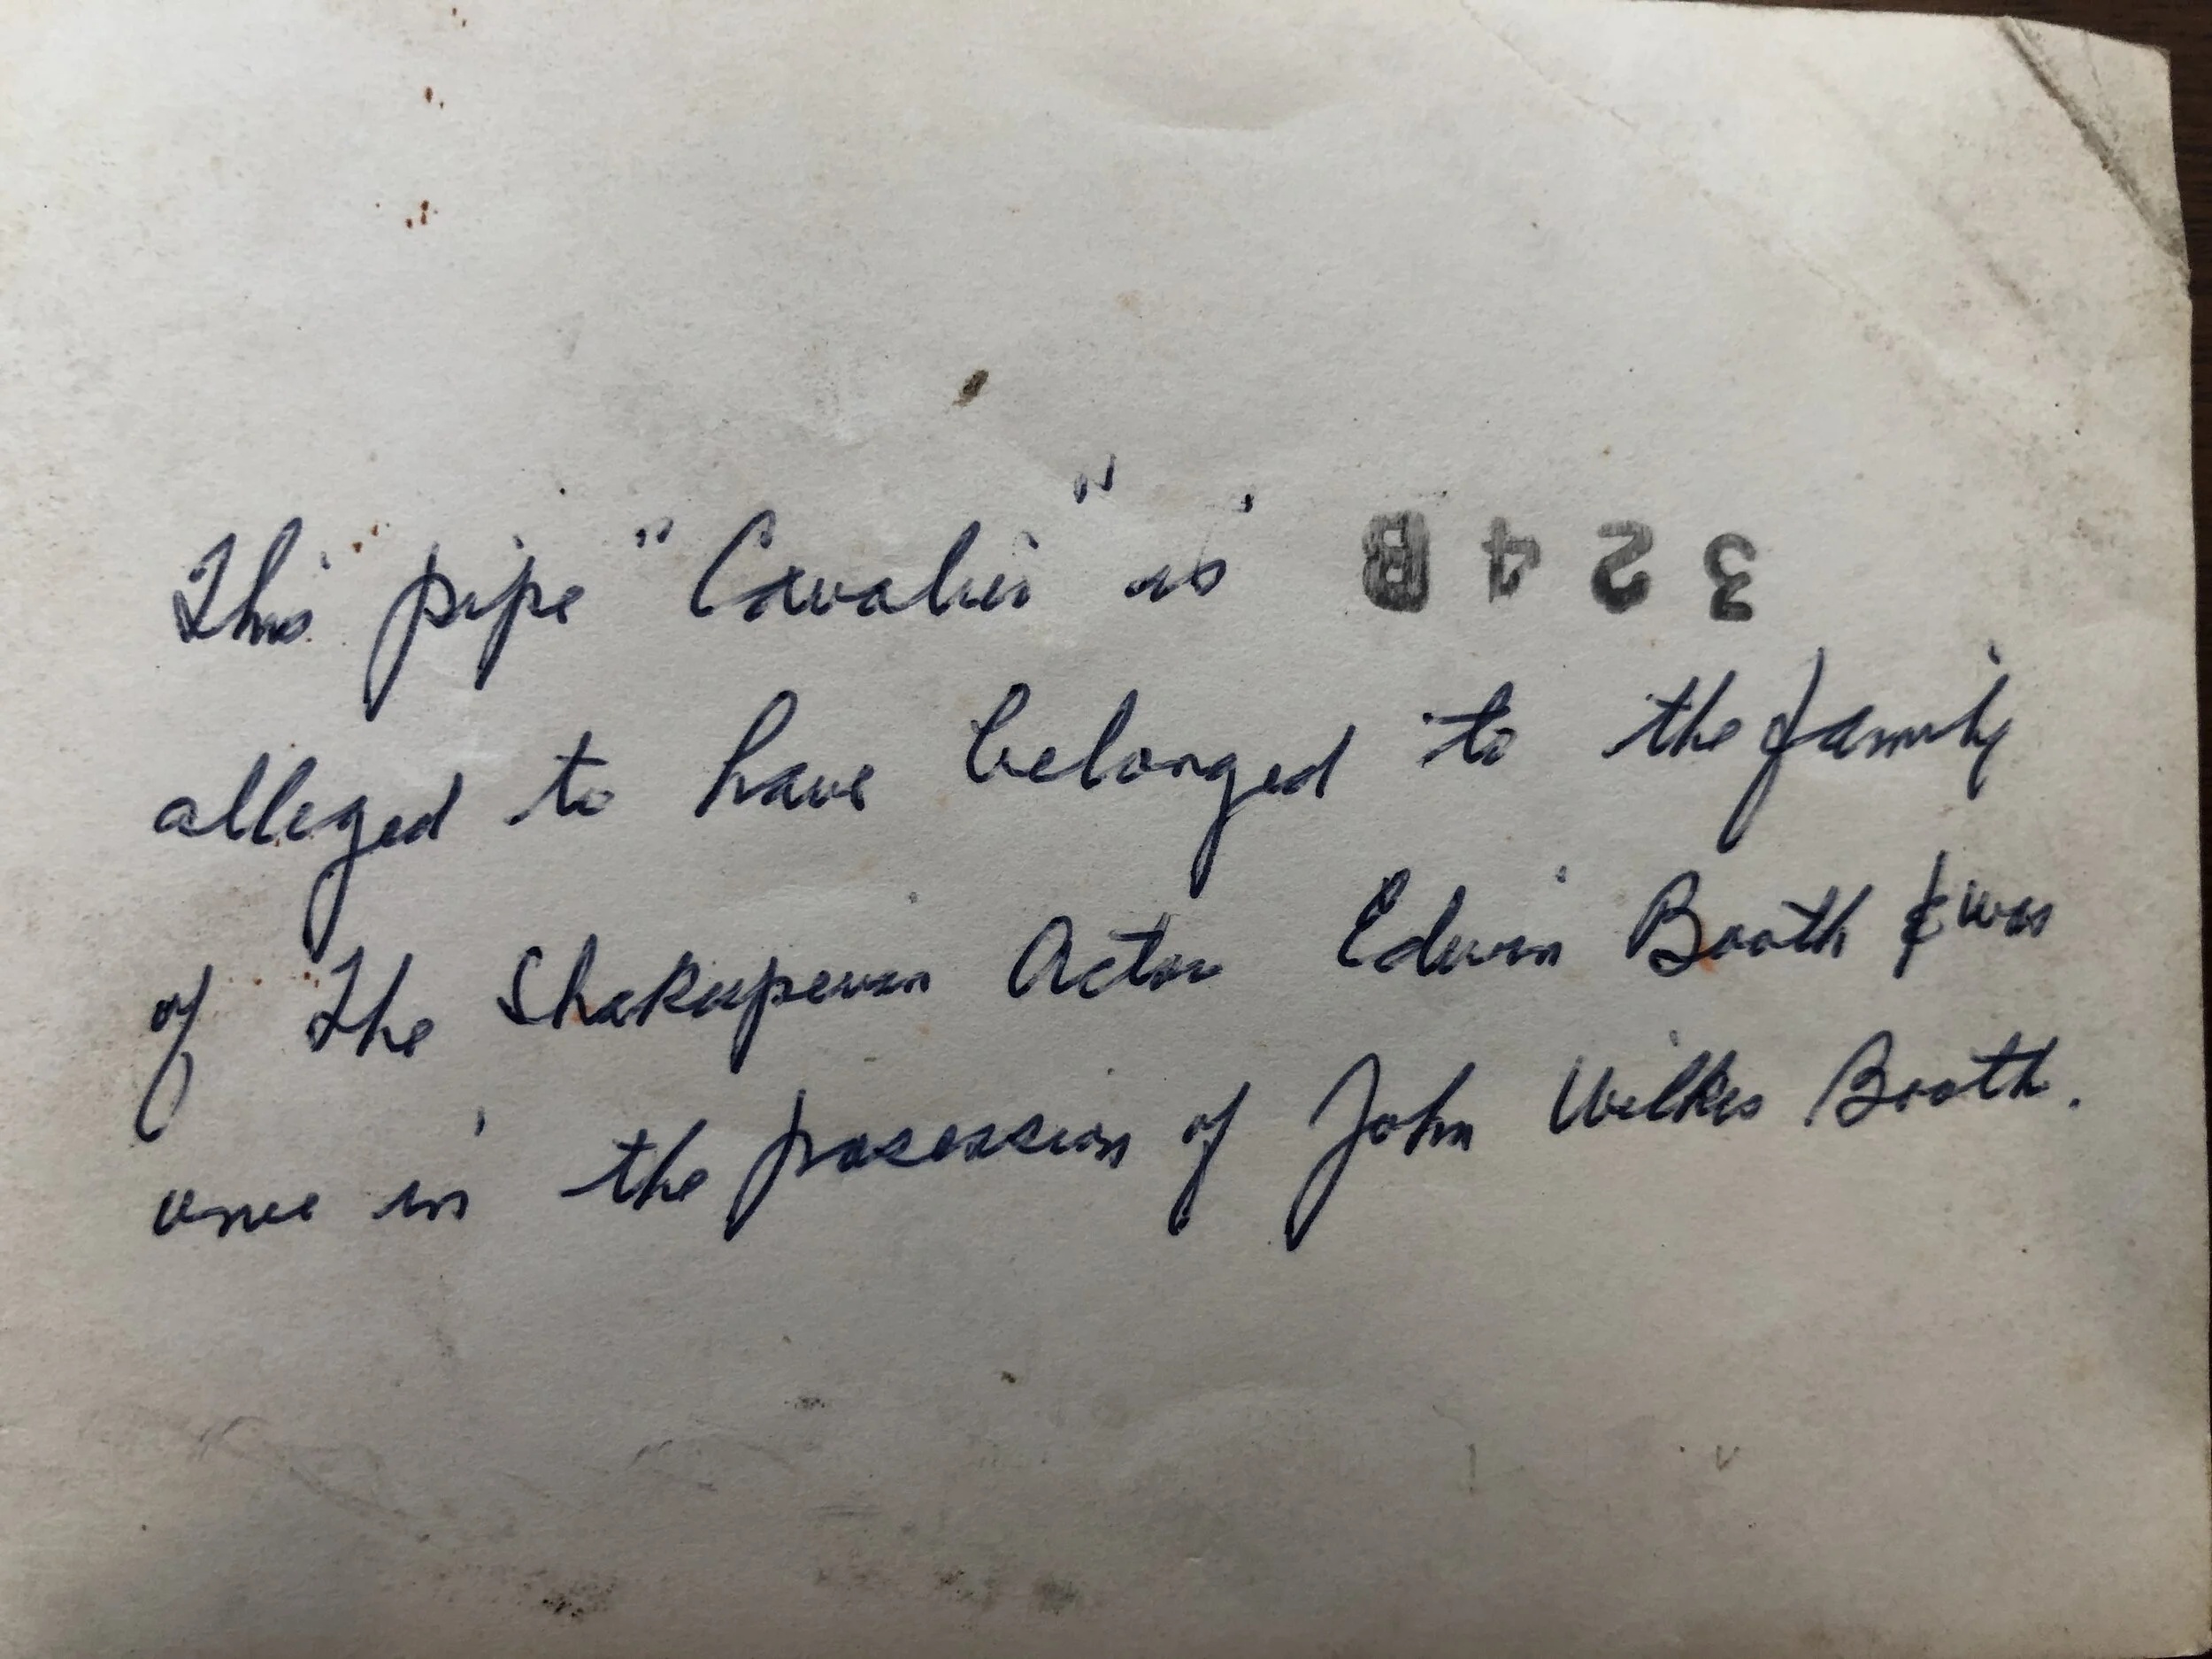 This pipe "Cavalier" is 324B
alleged to have belonged to the family
of The Shakespearean Actor Edwin Booth & was
once in the posession of John Wilkes Booth.